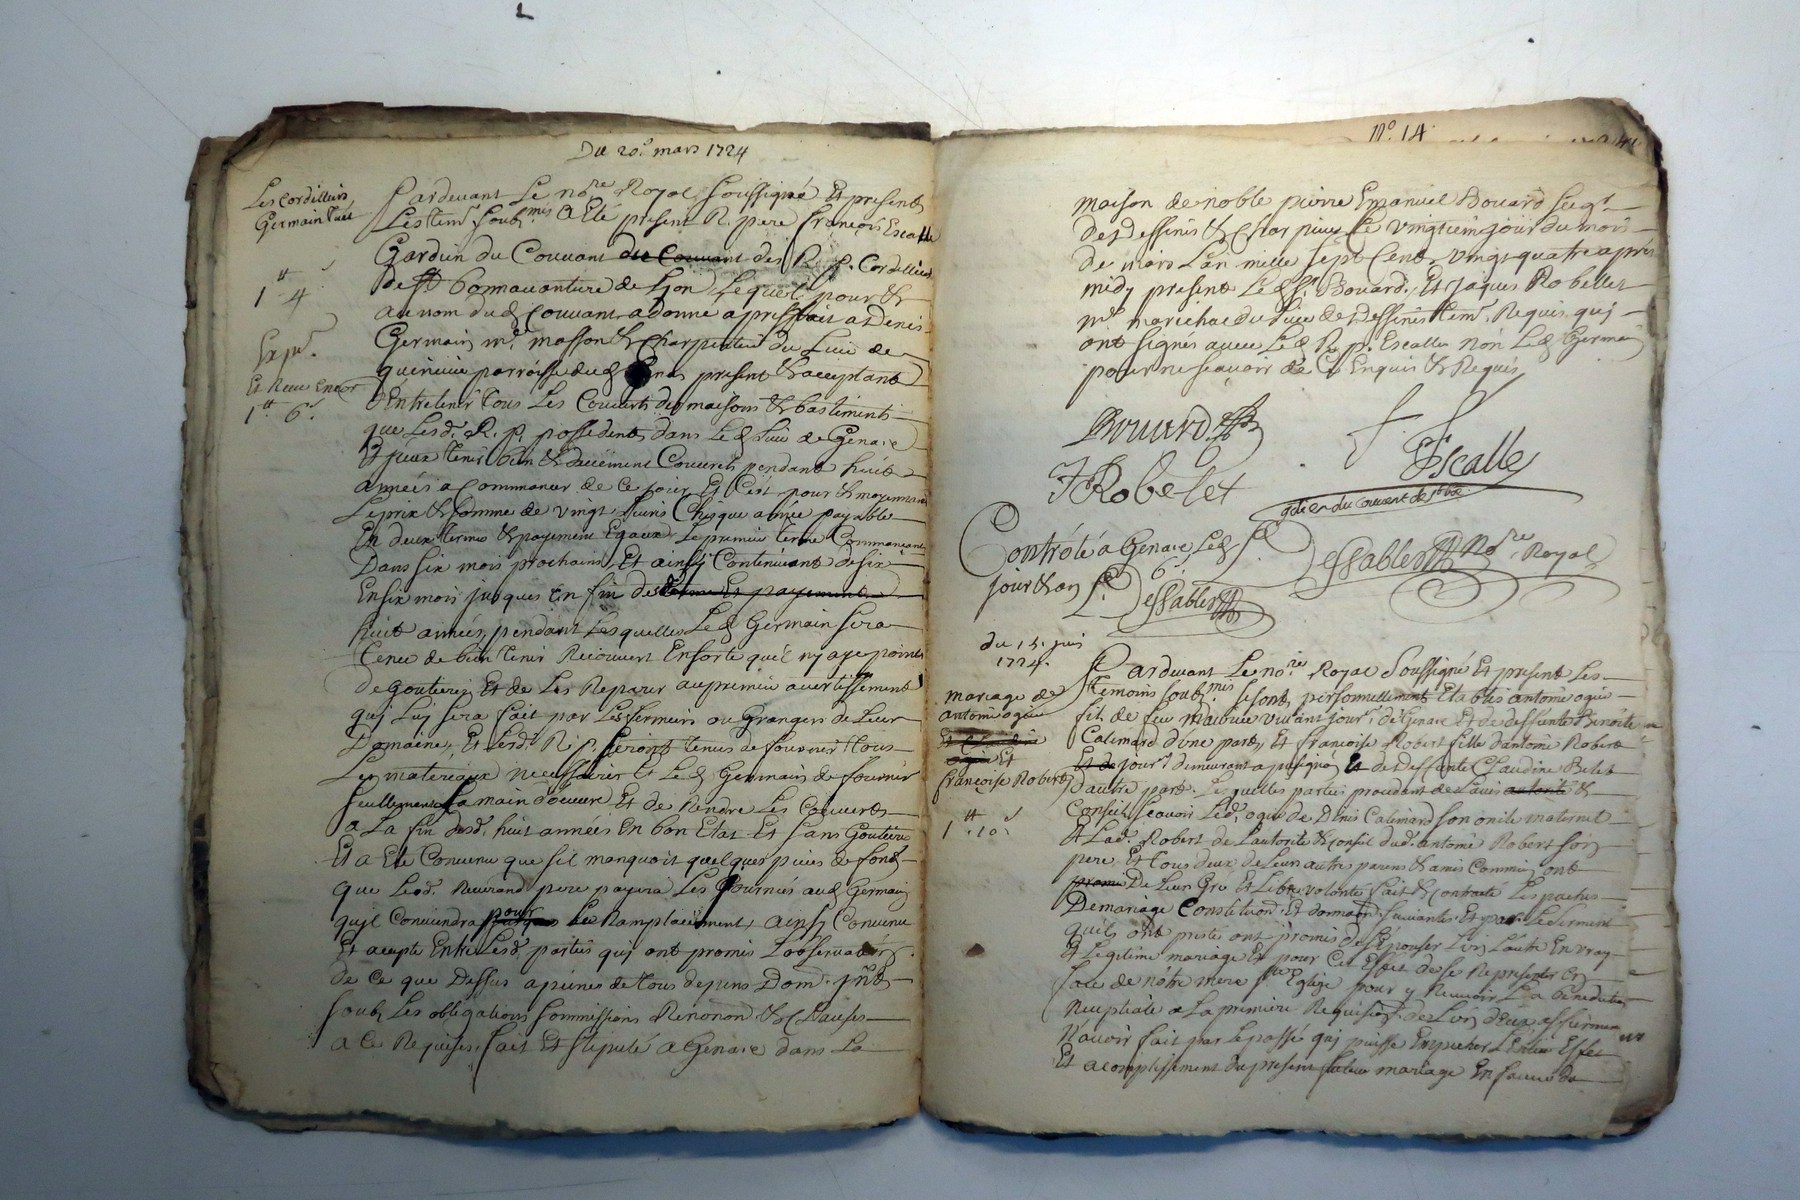 Du 20e mars 1724
Les Cordelliers
Germain
1tt 4s
Expié.
Et Receu
1tt 6s
Pardevant Le nore Royal Soussigné Et presents
Les tem. soubz.nes a Eté present R. pere françois Escalle
Gardien du Couvant des R. P. Cordelliers
de St bonnavanture de Lyon Lequel pour &
au nom dud Couvant a donné a prisfait a Denis
Germain mr. masson & Charpentier du Lieu de
parroisse dud present & acceptant
d'Entretenir tous Les Couverts des maisons & bastiments
que Lesd. R. P. possedent dans Led Lieu de Genaie
Et yceux tenir bien & deuement Couverts pendant huit
années a Commancer de ce jour Et C'est pour & moyennant
Le prix & somme de vingt Livres Chasque année payable
En deux termes & payements Egaux Le premier terme Commançant
Dans six mois prochains, Et ainsy Continuant de six
En six mois jusques En fin des
huit années, pendant Lesquelles Led Germain sera
tenu de bien tenir Recouvert Ensorte qu'il n'y aye point
de goutieres Et de Les Reparer au premier avertissement
quj Luj sera fait par Les fermiers ou Grangers de Leur
Domaine, Et Lesd. R. P. seront tenus de fournir tous
Les materiaux necessaires Et Led Germain de fournir
seullement La main d'oeuvre Et de Rendre Les Couverts
a La fin desd. huit années En bon Etat Et sans Goutiere
Et a Eté Convenu que s'il manquoit quelques pieces de fonds
que Led. Reverand pere payera Les Journées aud Germain
qu'jl Conviendra pour Le Ramplacement, ainsy Convenu
Et accepté Entre Lesd. parties quj ont promis L'observation
de ce que Dessus a peines de tous depens Dom. jnts
soubz Les obligations sommissions Renonon. & Clauses
a Ce Requises, fait Et stipulé a Genaie dans La
no. 14
maison de noble pierre Emanuel Bouard
de Dessinés & Charpieu Le vingtiem jour du mois
de mars L'an mille sept Cents vingt quatre apres
midy presents Led. Sr. Bouard, Et Jaques Robellet
mr. marichal du Lieu de Dessinés tem. Requis quj
ont signés avec Led R. p. Escalle non Led Germain
pour ne sçavoir de Ce Enquis & Requis
Bouard
Escalle
J Robelet
gdien du couvent de st bo
Controlé a Genaie Led
jour & an
Dessables No.re Royal
Dessables
du 15. juin
1724.
mariage de
antoine ogier
Et
françoise Robert
1tt 10s
Pardevant Le no.re Royal Soussigné Et present Les
temoins soub.nés se sont personnellement Etablis antoine ogier
fils de feu vivant jour.r de Genaie Et de deffunte Benoite
Calimard d'une part, Et françoise Robert fille d'antoine Robert
jour.r demeurant a & de deffunte Claudine
d'autre part. Lesquelles parties procedant de L'avis &
Conseil, sçavoir Led. ogier de Denis Calimard son oncle maternel
Et Lad. Robert de L'autorité & conseil dud. antoine Robert son
pere Et tous deux de Leurs autres parens & amis Communs ont
De Leur Gré Et Libre volonté fait & contracté Les pactes
De mariage Constitu.on Et donna.on suivantes Et par Le serment
qu'ils ont presté ont promis de s'Epouser L'un L'autre En vray
Et Legitime mariage Et pour Cet Effet de se Representer En
face de nôtre mere ste Eglize pour y Recevoir La benediction
nuptiale a La premiere Requisi.on de L'un d'eux
N'avoir fait par Le passé quj puisse Empecher L'entier Effet
Et acomplissement du present futur mariage En faveur du